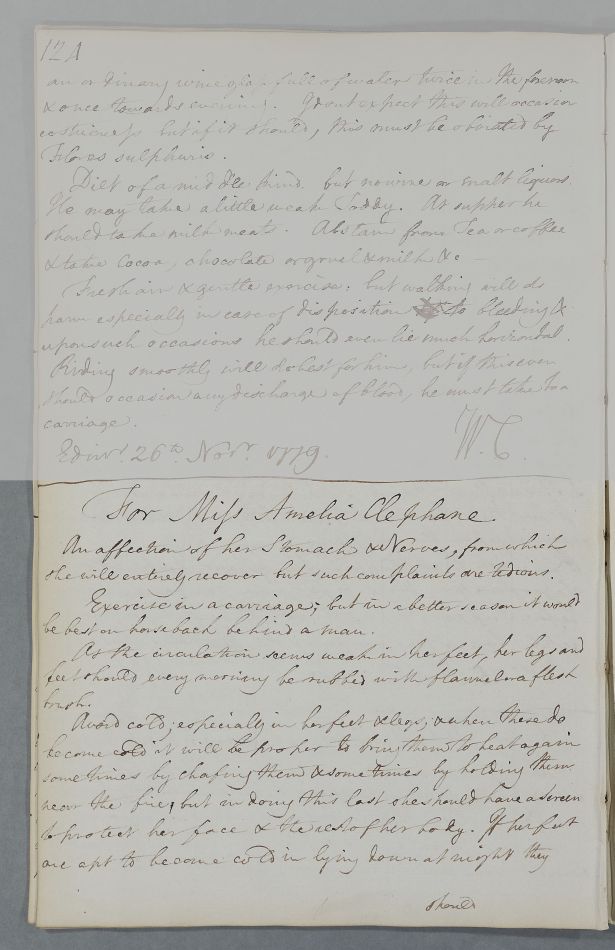 12A
an ordinary wine glass full of water twice in the forenoon
& once towards evening. I dont expect this will occasion
costiveness but if it should, this must be obviated by
Flores sulphuris.
Diet of a middle kind. but no wine or malt liquors.
He may take a little weak Toddy. At supper he
should take milk meats. Abstain from Tea or coffee
& take Cocoa, chocolate or gruel & milk &c —
Fresh air & gentle exercise. but walking will do
harm especially in case of disposition to bleeding &
upon such occasions he should even lie much horizontal.
Riding smoothly will do best for him, but if this even
should occasion any discharge of blood, he must take to a
carriage.
Edinr. 26th. Novr. 1779. W.C.
For Miss Amelia Clephane.
An affection of her Stomach & Nerves, from which
she will entirely recover but such complaints are tedious.
Exercise in a carriage; but in a better season it would
be best on horseback behind a man.
As the circulation seems weak in her feet, her legs and
feet should every morning be rubbed with flannel or a flesh
brush.
Avoid cold; especially in her feet & legs; & when these do
become cold it will be proper to bring them to heat again
sometimes by chafing them & sometimes by holding them
near the fire, but in doing this last she should have a screen
to protect her face & the rest of her body. If her feet
are apt to become cold in lying down at night they
should